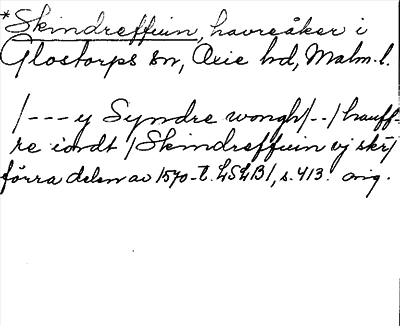 *Skindreffuin, havreåker i
Glostorps sn, Oxie hd, Malm. l.
/--- y Syndre wongh/--/hauff-
re iordt /Skindreffuin vj skr/
förra delen av 1570-t. LSLB1, s. 413. orig.